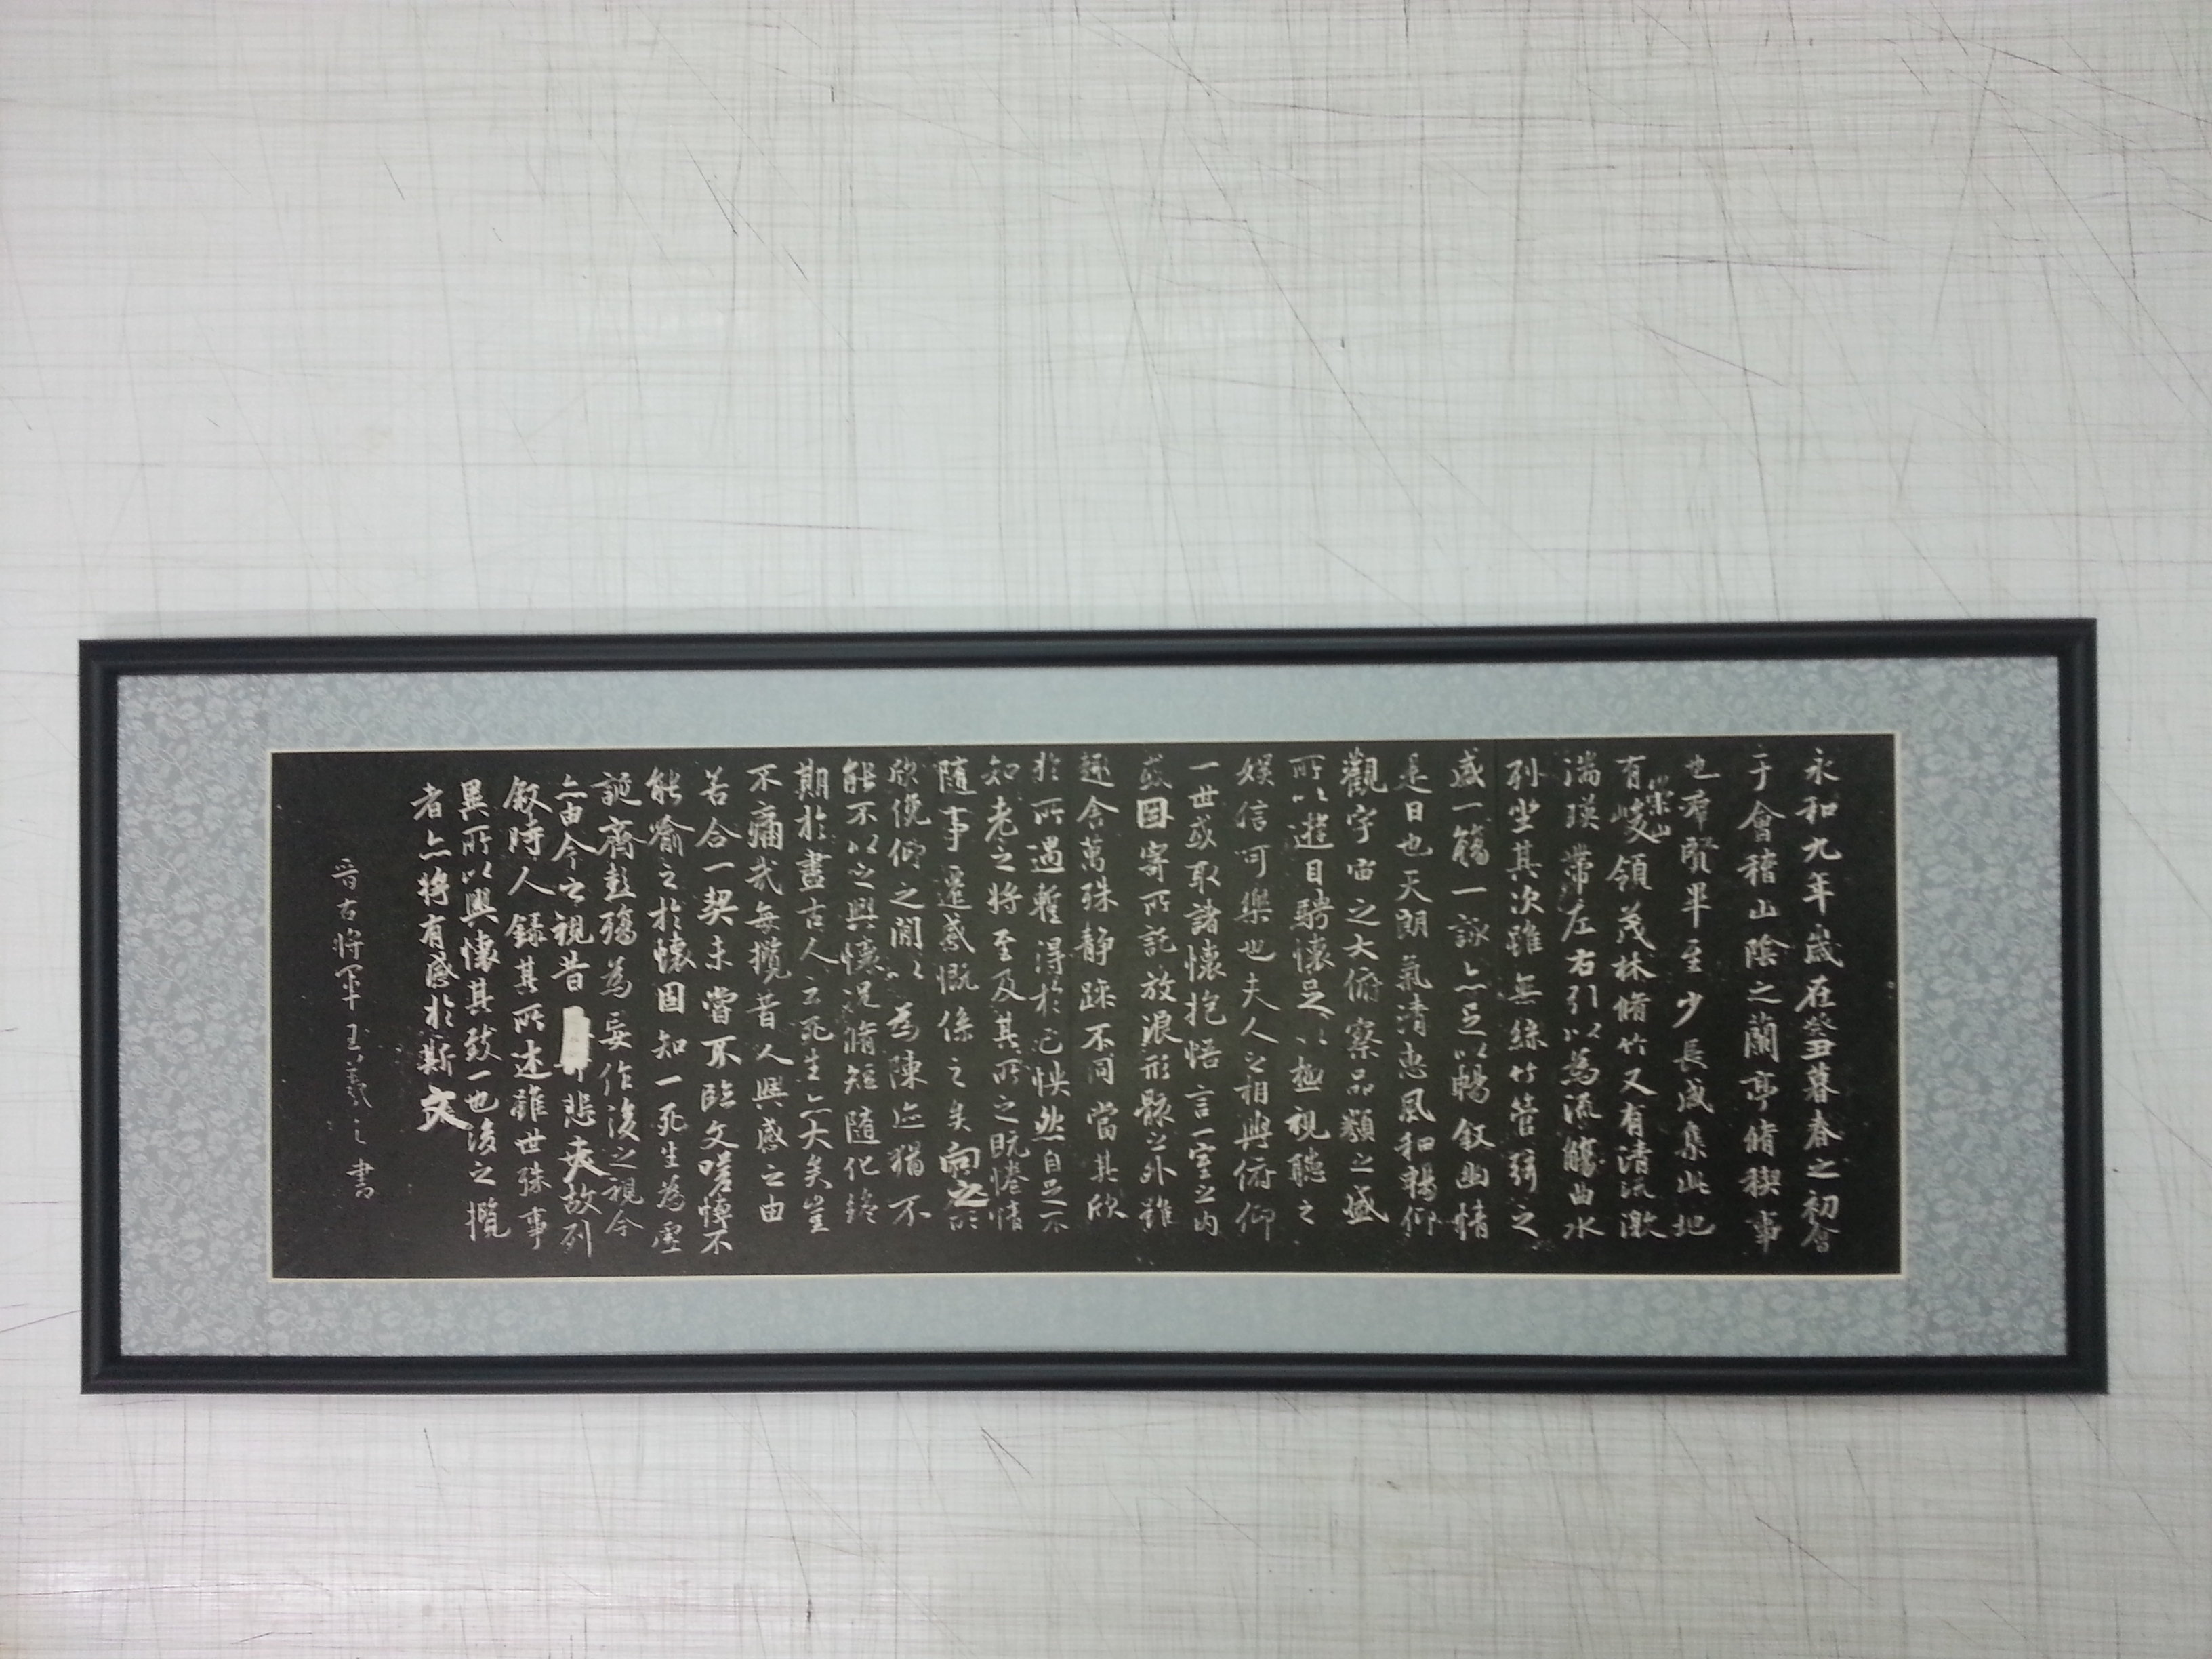 永和九年歲在癸丑暮春之初會
于會稽山陰之蘭亭脩稧事
也羣賢畢至少長咸集此地
有崇山峻領茂林脩竹又有清流激
湍暎帶左右引以為流觴曲水
列坐其次雖無絲竹管弦之
盛一觴一詠亦足以暢敘幽情
是日也天朗氣清惠風和暢仰
觀宇宙之大俯察品類之盛
所以遊目騁懷足以極視聽之
娛信可樂也夫人之相與俯仰
一世或取諸懷抱悟言一室之內
或因寄所託放浪形骸之外雖
趣舍萬殊靜躁不同當其欣
於所遇暫得於己怏然自足不
知老之將至及其所之既惓情
隨事遷感慨係之矣向之所
欣俛仰之閒以為陳迹猶不
能不以之興懷況脩短隨化終
期於盡古人云死生亦大矣豈
不痛哉每攬昔人興感之由
若合一契未嘗不臨文嗟悼不
能喻之於懷固知一死生為虛
誕齊彭殤為妄作後之視今
亦由今之視昔 悲夫故列
敘時人錄其所述雖世殊事
異所以興懷其致一也後之攬
者亦將有感於斯文
晉右將軍王羲之書